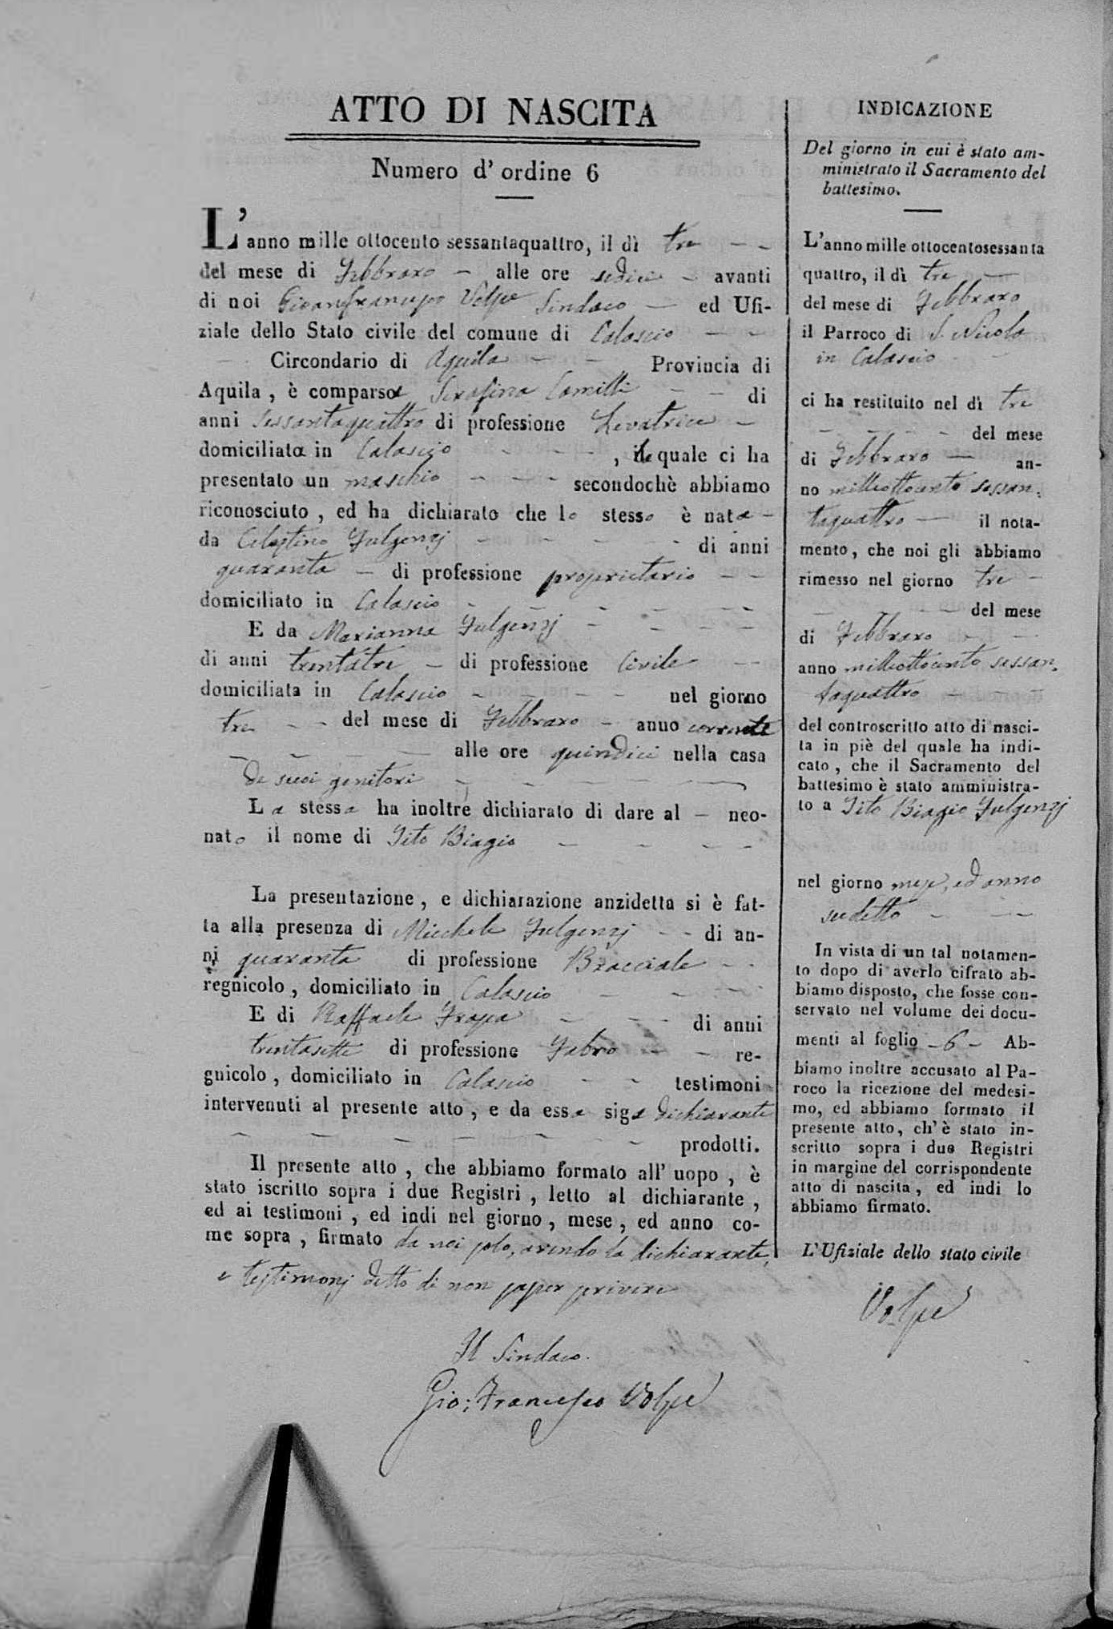 ATTO DI NASCITA
Numero d'ordine 6
L'anno mille ottocento sessantaquattro, il dì tre
del mese di Febbraro alle ore sedici avanti
di noi Gioanfrancesco Volpe Sindaco ed Ufi-
ziale dello Stato civile del comune di Calascio
Circondario di Aquila Provincia di
Aquila, è comparsa Serafina Camilli di
anni sessantaquattro di professione Levatrice
domiciliata in Calascio , la quale ci ha
presentato un maschio secondochè abbiamo
riconosciuto, ed ha dichiarato che lo stesso è nato
da Celestino Fulgenzj di anni
quaranta di professione proprietario
domiciliato in Calascio
E da Marianna Fulgenzj
di anni trentatre di professione Civile
domiciliata in Calascio nel giorno
tre del mese di Febbraro anno corrente
alle ore quindici nella casa
de suoi genitori
La stessa ha inoltre dichiarato di dare al neo-
nato il nome di Tito Biagio
La presentazione, e dichiarazione anzidetta si è fat-
ta alla presenza di Micchele Fulgenzj di an-
ni quaranta di professione Bracciale
regnicolo, domiciliato in Calascio
E di Raffaele Frasca di anni
trentasette di professione Febro re-
gnicolo, domiciliato in Calascio testimoni
intervenuti al presente atto, e da essa siga dichiarante
prodotti.
Il presente atto, che abbiamo formato all' uopo, è
stato iscritto sopra i due Registri, letto al dichiarante,
ed ai testimoni, ed indi nel giorno, mese, ed anno co-
me sopra, firmato da noi solo, avendo la dichiarante,
e testimonj detto di non saper scrivere
Il Sindaco.
Gio: Francesco Volpe
INDICAZIONE
Del giorno in cui è stato am-
ministrato il Sacramento del
battesimo.
L'anno mille ottocentosessanta
quattro, il dì tre
del mese di Febbraro
il Parroco di S. Nicola
in Calascio
ci ha restituito nel dì tre
del mese
di Febbraro an-
no milleottocento sessan-
taquattro il nota-
mento, che noi gli abbiamo
rimesso nel giorno tre
del mese
di Febbraro
anno milleottocento sessan-
taquattro
del controscritto atto di nasci-
ta in piè del quale ha indi-
cato, che il Sacramento del
battesimo è stato amministra-
to a Tito Biagio Fulgenzj
nel giorno mese, ed anno
sudetto
In vista di un tal notamen-
to dopo di averlo cifrato ab-
biamo disposto, che fosse con-
servato nel volume dei docu-
menti al foglio -6- Ab-
biamo inoltre accusato al Pa-
roco la ricezione del medesi-
mo, ed abbiamo formato il
presente atto, ch'è stato in-
scritto sopra i due Registri
in margine del corrispondente
atto di nascita, ed indi lo
abbiamo firmato.
L'Ufiziale dello stato civile
Volpe